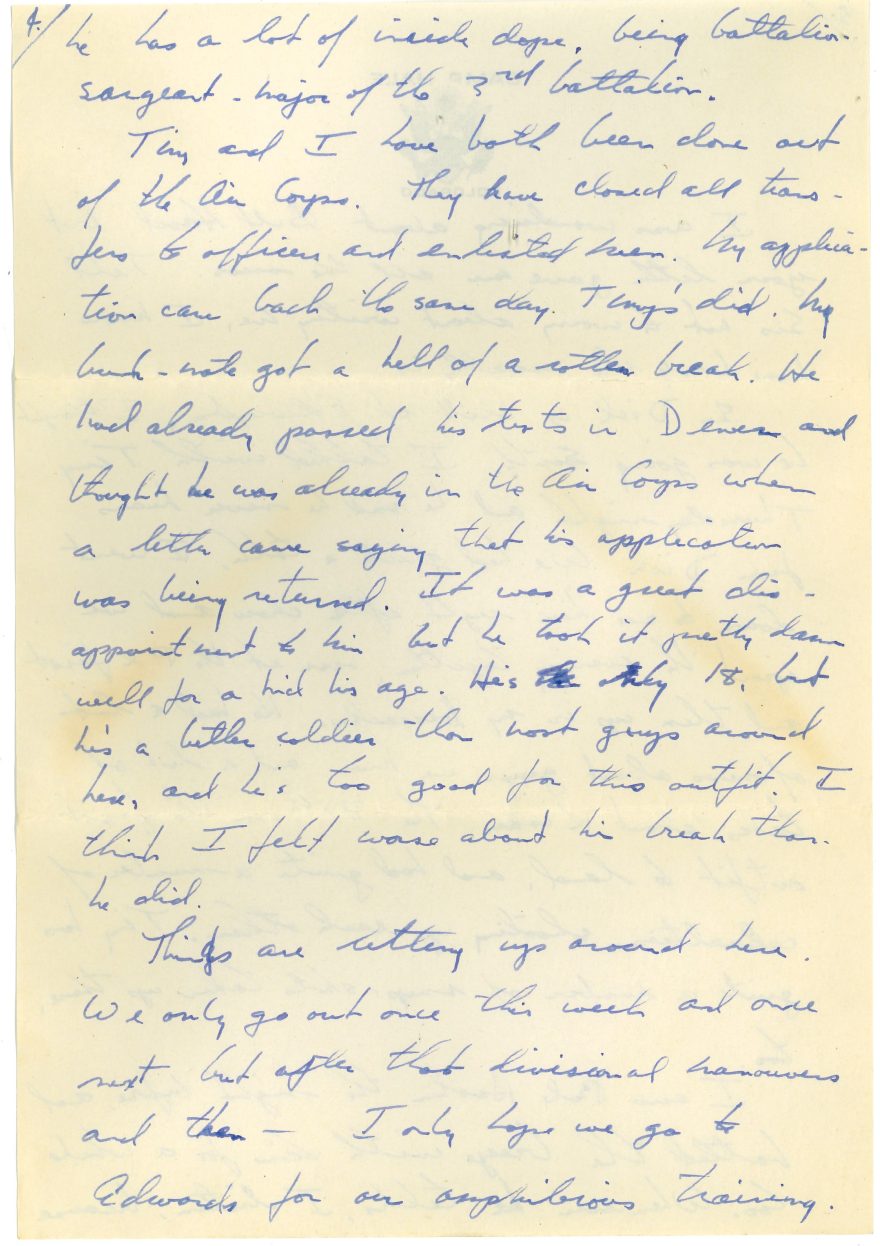 4./
he has a lot of inside dope, being battalion
sargeant-major of the 3rd battalion.
Tiny and I have both been done out
of the Air Corps. They have closed all trans-
fers to officers and enlisted men. My applica-
tion came back the same day Tiny's did. My
bunk-mate got a hell of a rotten break. He
had already passed his tests in Denver and
thought he was already in the Air Corps when
a letter came saying that his application
was being returned. It was a great dis-
appointment to him but he took it pretty damn
well for a kid his age. He's only 18, but
he's a better soldier than most guys around
here, and he's too good for this outfit. I
think I felt worse about his break than
he did.
Things are letting up around here.
We only go out once this week and once
next but after that divisional manouvers
and then — I only hope we go to
Edwards for our amphibious training.